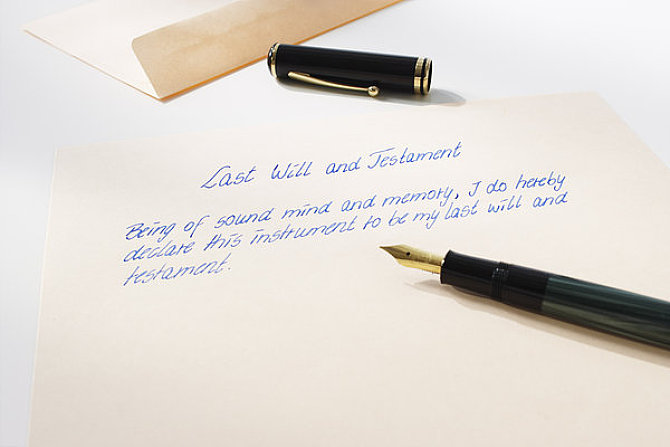 Last Will and Testament
Being of sound mind and memory, I do hereby
declare this instrument to be my last will and
testament.